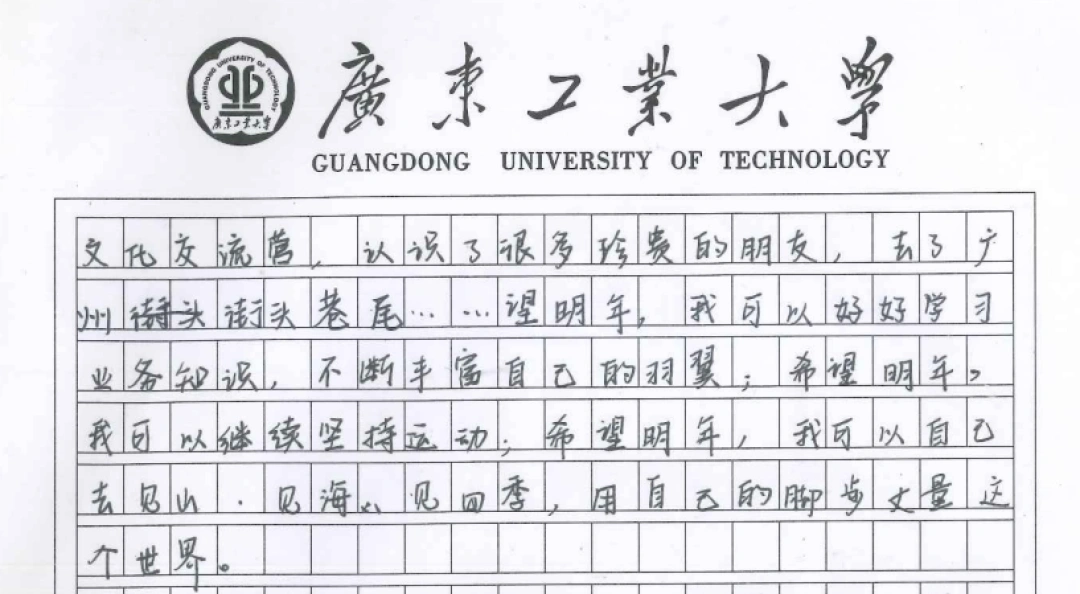 GUANGDONG UNIVERSITY OF TECHNOLOGY
廣東工業大學
廣東工業大學
GUANGDONG UNIVERSITY OF TECHNOLOGY
文化交流营，认识了很多珍贵的朋友，去了广
州街头街头巷尾……望明年，我可以好好学习
业务知识，不断丰富自己的羽翼；希望明年。
我可以继续坚持运动；希望明年，我可以自己
去见山．见海、见四季，用自己的脚步丈量这
个世界。